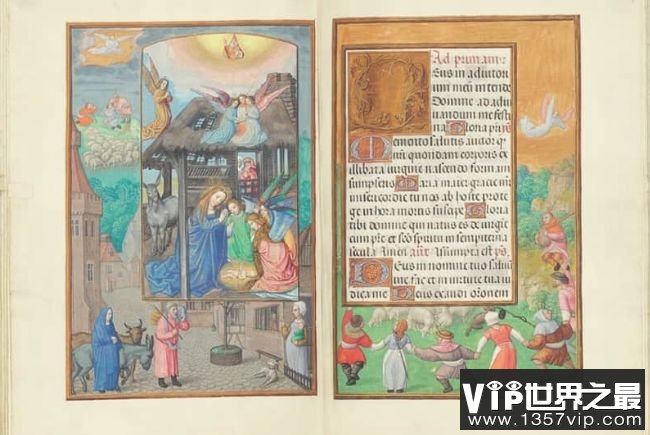 Ad primam
Deus in adiutor
ium meū in tende
Domine ad adiu
uandum me festi
na Gloria
Memento salutis auctor q
nr̄i quondam corporis ex
illibata uirgine nascendo formam
sumpseris Maria mater gracie m̄r
misericordie tu nos ab hoste prote
ge in hora mortis suscipe Gloria
tibi domine qui natus es de uirgīe
cum pr̄e et sc̄o spiritu in sempiterna
secula Amen Assumpta est
Deus in nomine tuo saluū
me fac et in uirtute tua iu
dica me Deus exaudi oronem
VIP世界之最
www.1357vip.com